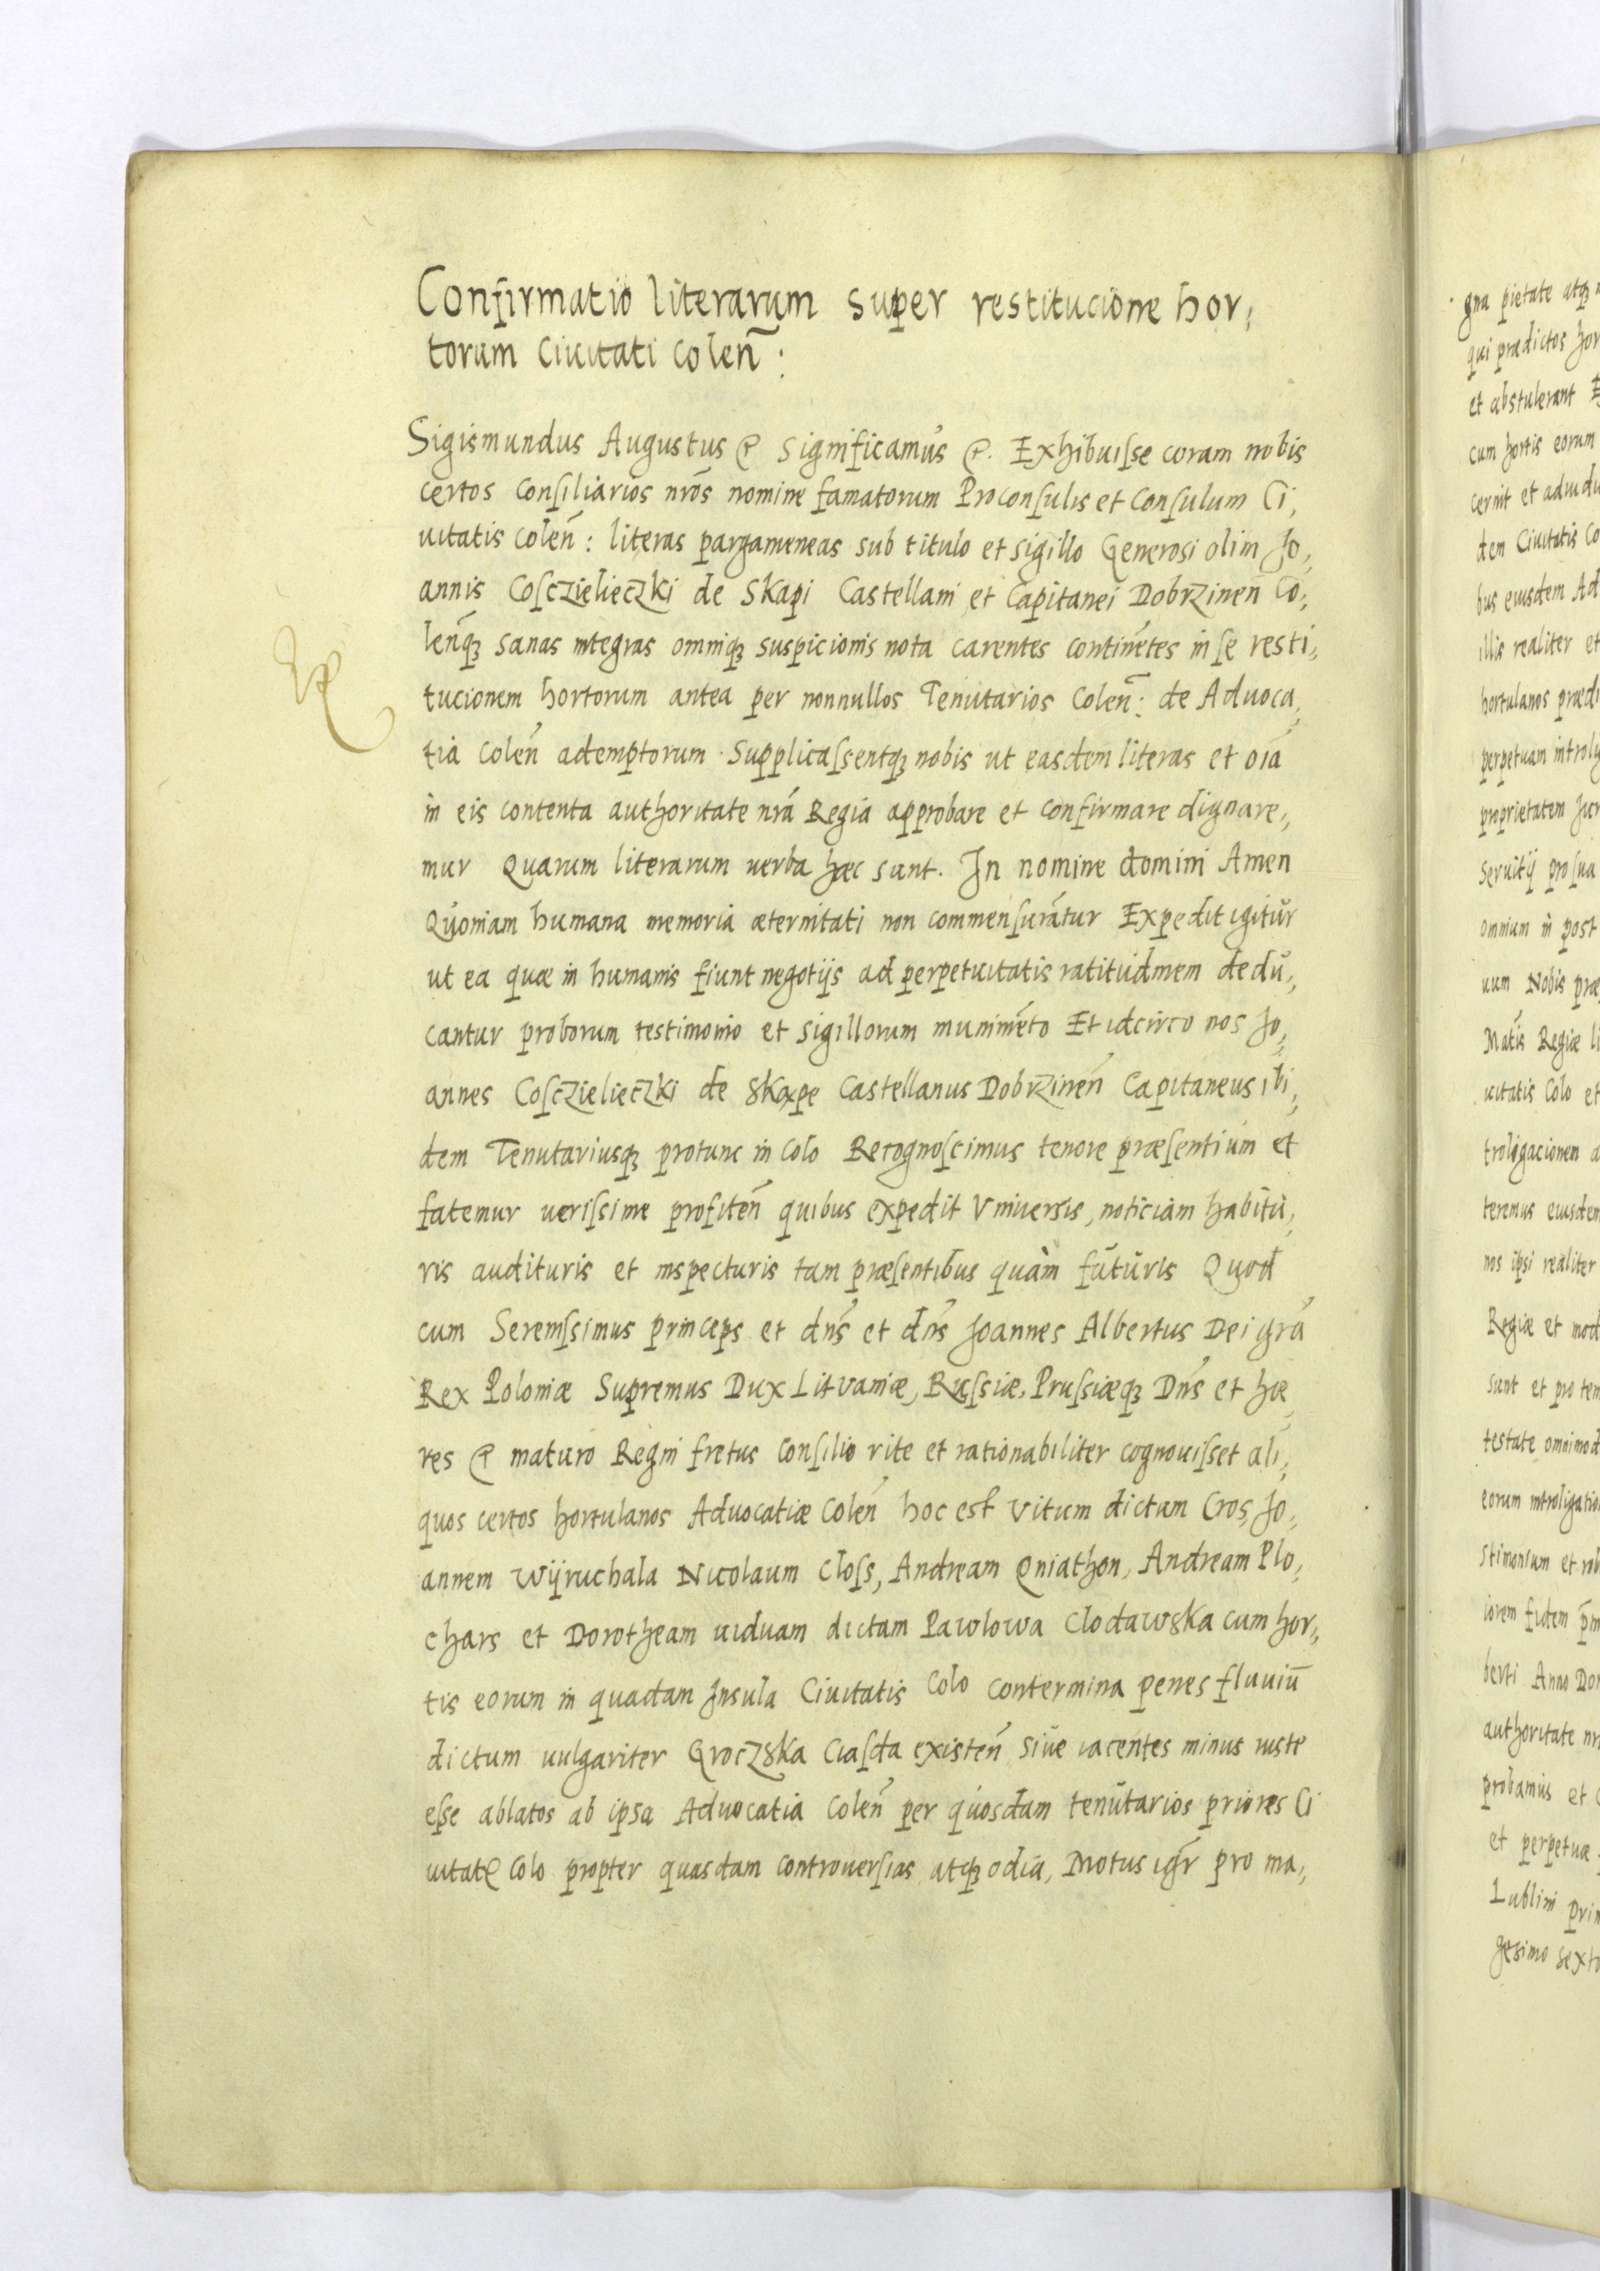 Confirmatio literarum super restitucione hor,
torum Ciuitati Coleñ:
Sigismundus Augustus &c Significamus &c. Exhibuiſse coram nobis
certos Conſiliarios nrōs nomine famatorum Proconſulis et Conſulum Ci,
uitatis Coleñ: literas pargameneas sub titulo et sigillo Generosi olim Jo,
annis Coſczielieczki de Skapi Castellani et Capitanei Dobrzineñ Co,
leñq; sanas integras omniq; suspicionis nota carentes continētes in ſe resti,
tucionem hortorum antea per nonnullos Tenutarios Coleñ: de Aduoca,
tia Coleñ ademptorum. Supplicaſsentq; nobis ut easdem literas et oīa
in eis contenta authoritate nrā Regia approbare et confirmare dignare,
mur Quarum literarum uerba hæc sunt. In nomine domini Amen
Quoniam humana memoria æternitati non commenſuratur Expedit igitur
ut ea quæ in humanis fiunt negotijs ad perpetuitatis ratitudinem dedu,
cantur proborum testimonio et sigillorum munimēto Et idcirco nos Jo,
annes Coſczielieczki de Skape Castellanus Dobrzineñ Capitaneus ibi,
dem Tenutariusq; protunc in Colo Recognoſcimus tenore præſentium et
fatemur ueriſsime profiteñ quibus expedit Vniuersis, noticiam habitu,
ris audituris et inspecturis tam præſentibus quàm futuris Quod
cum Sereniſsimus princeps et dn̄s et dn̄s Joannes Albertus Dei grā
Rex Poloniæ Supremus Dux Litvaniæ, Ruſsiæ, Pruſsiæq; Dn̄s et hæ
res &c maturo Regni fretus Conſilio rite et rationabiliter cognouiſset ali,
quos certos hortulanos Aduocatiæ Coleñ hoc est Vitum dictum Cros, Jo,
annem Wijruchala Nicolaum Cloſs, Andream Qniathon, Andream Plo,
chars et Dorotheam uiduam dictam Pawlowa Clodawska cum hor,
tis eorum in quadam Insula Ciuitatis Colo contermina penes fluuiū
dictum uulgariter Groczska Ciaſda existeñ siue iacentes minus iuste
eſse ablatos ab ipsa Aduocatia Coleñ per quosdam tenutarios priores Ci
uitatꝭ Colo propter quasdam controuerſias atq; odia, Motus igr̄ pro ma,
gna pietate atq;
qui prædictos
et abstulerant
cum hortis eorum
cernit et
dem Ciuitatis
bus eiusdem
illis realiter et
hortulanos
perpetuam
proprietatem
Seruitij pro sua
omnium in
uum Nobis
Mātis Regiæ
uitatis Colo et
troligacionem
teremus
nos ipsi realiter
Regiæ et
sunt et pro
testate
eorum
Stimonium et
iorem fidem
berti Anno
authoritate
probamus et
et perpetuæ
Lublini
gesimo